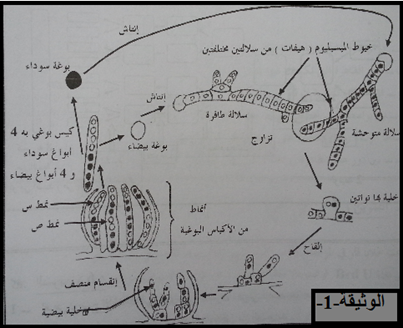 إنتاش
خيوط الميسيليوم ( هيفات ) من سلالتين مختلفتين
بوغة سوداء
إنتاش
سلالة طافرة
سلالة متوحشة
بوغة بيضاء
تزاوج
كيس بوغي به 4
أبواغ سوداء
و 4 أبواغ بيضاء
خلية بها نواتين
نمط س
نمط ص
أنماط
من الأكياس البوغية
إلقاح
إنقسام منصف
خلية بيضية
الوثيقة-1-